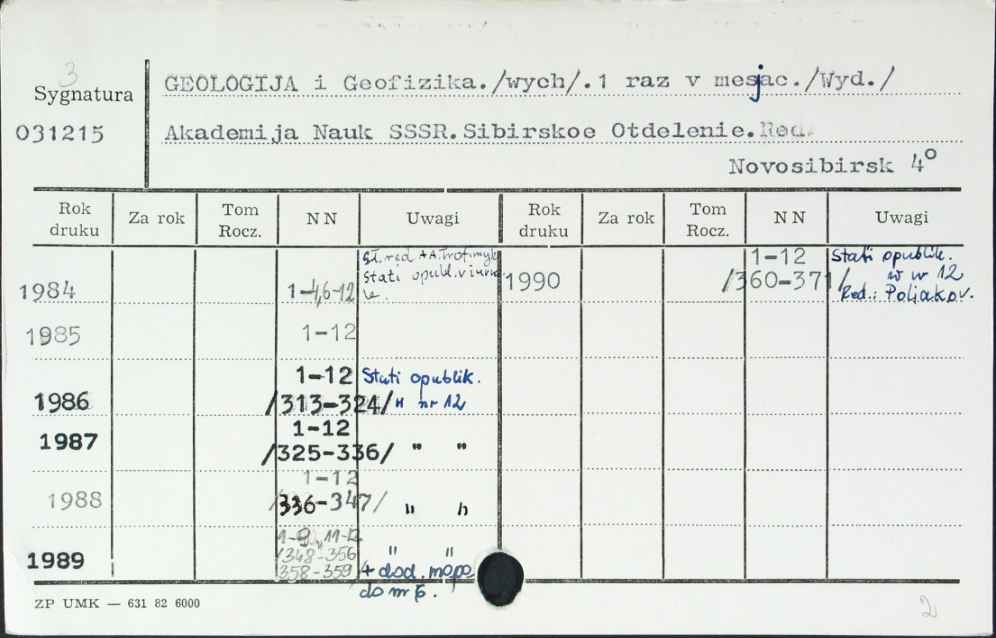 3
Sygnatura
031215
GEOLOGIJA i Geofizika./wych/.1 raz v mesjac./Wyd./
Akademija Nauk SSSR.Sibirskoe Otdelenie.Red.
Novosibirsk 4°
Rok druku Za rok Tom Rocz. NN Uwagi Rok druku Za rok Tom Rocz. NN Uwagi
1984 1-4,6-12 gł. red A A Trofimyk Stati opubl. v
1990 1-12 /360-371/ Stati opublik. w nr 12 Red.: Poljakov.
1985 1-12
1986 1-12 /313-324/ Stati opublik. w nr 12
1987 1-12 /325-336/ " "
1988 1-12 /336-347/ " "
1989 1-9, 11-12 /348-356 358-359/ " " + dod. mapa do nr 5.
ZP UMK — 631 82 6000
2